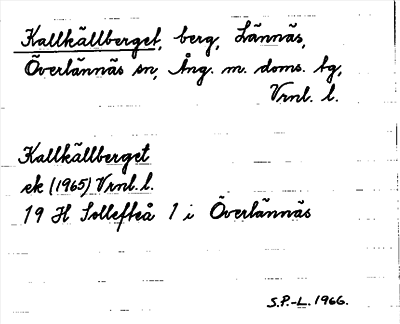 Kallkällberget, berg, Lännäs,
Överlännäs sn, Ång. m. doms. tg,
Vrnl. l.
Kallkällberget
ek (1965) Vrnl. l.
19 H Sollefteå 1 i Överlännäs
S.P.-L. 1966.